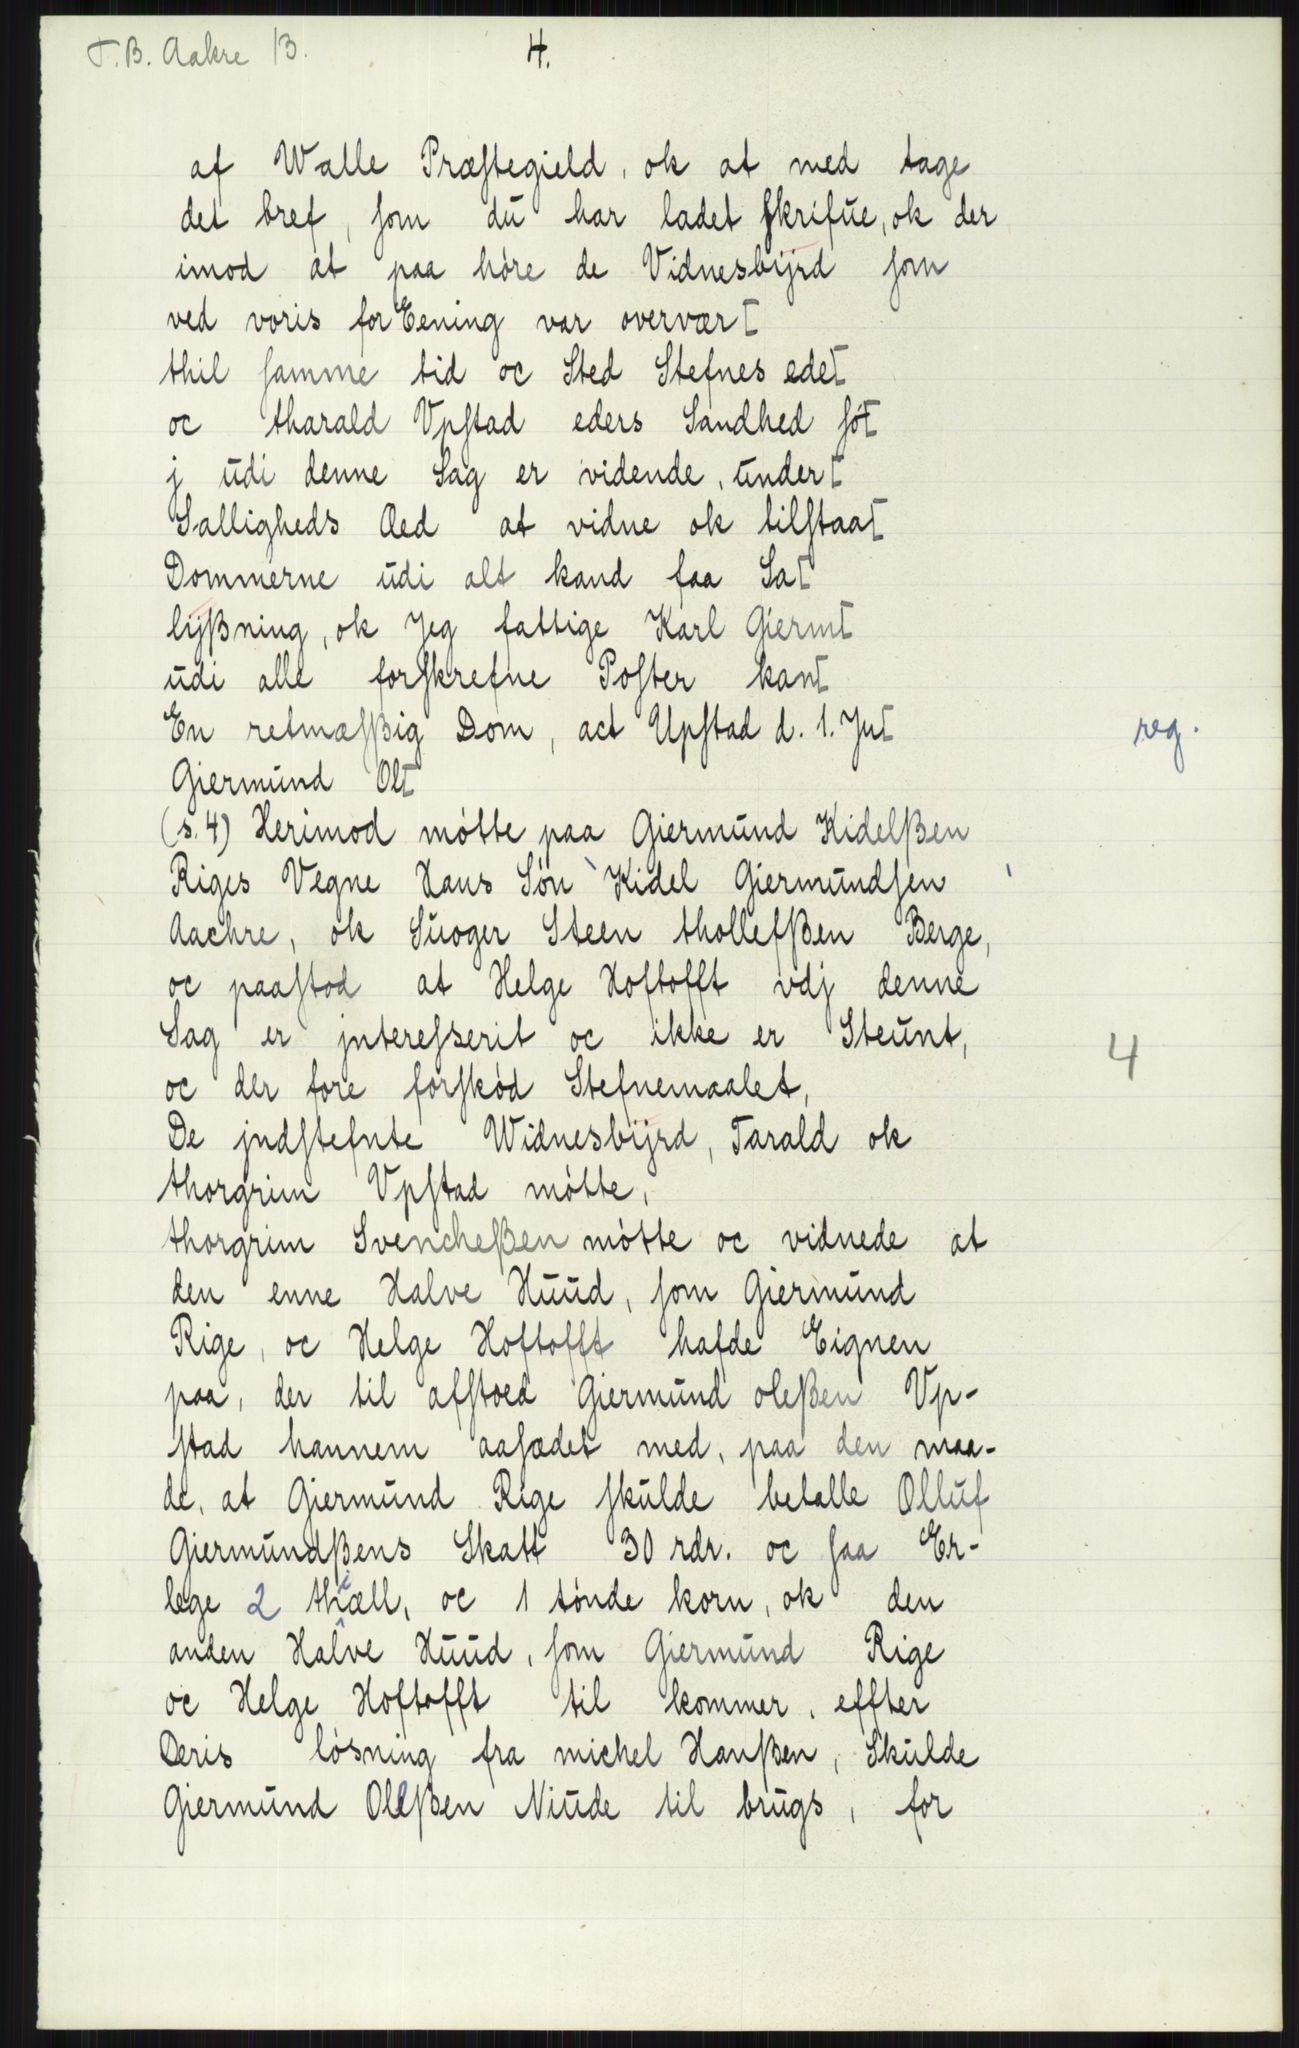 T.B. Aakre 13.
4.
af Walle Præstegield, ok at med tage
det bref, som du har ladet skrifue, ok der
imod at paa høre de Vidnesbÿrd som
ved voris forEening var overvær[
thil samme tid oc Sted Stefnes ede[
oc tharald Vpstad eders Sandhed so[
j udi denne Sag er vidende, under[
Salligheds Aed at vidne ok tilstaa[
Dommerne udi alt kand faa Sa[
lÿßning, ok Jeg fattige Karl Gierm[
udi alle forskrefne Poster kan[
En retmæssig Dom, act Upstad d. 1. Ju[
reg.
Giermund Ol[
(s. 4) Herimod møtte paa Giermund Kidelßen
Riges Vegne Hans Søn Kidel Giermundsen
Aachre, ok Suoger Steen thollefßen Berge,
oc paastod at Helge Hoftofft vdj denne
Sag er jnteresserit oc ikke er Steunt,
4
oc der fore forskød Stefnemaalet,
De jndstefnte Widnesbÿrd, Tarald ok
thorgrim Vpstad møtte,
thorgrim Svencheßen møtte oc vidnede at
den enne Halve Huud, som Giermund
Rige, oc Helge Hoftofft hafde Eignen
paa, der til afstoed Giermund oleßen Vp-
stad hannem aasædet med, paa den maa-
de, at Giermund Rige skulde betalle Olluf
Giermundßens Skatt 30 rdr. oc saa Er-
lege 2 thiæll, oc 1 tønde korn, ok den
anden Halve Huud, som Giermund Rige
oc Helge Hoftofft til kommer, effter
Deris løsning fra michel Hanßen, Skulde
Giermund Oleßen Niude til brugs, for